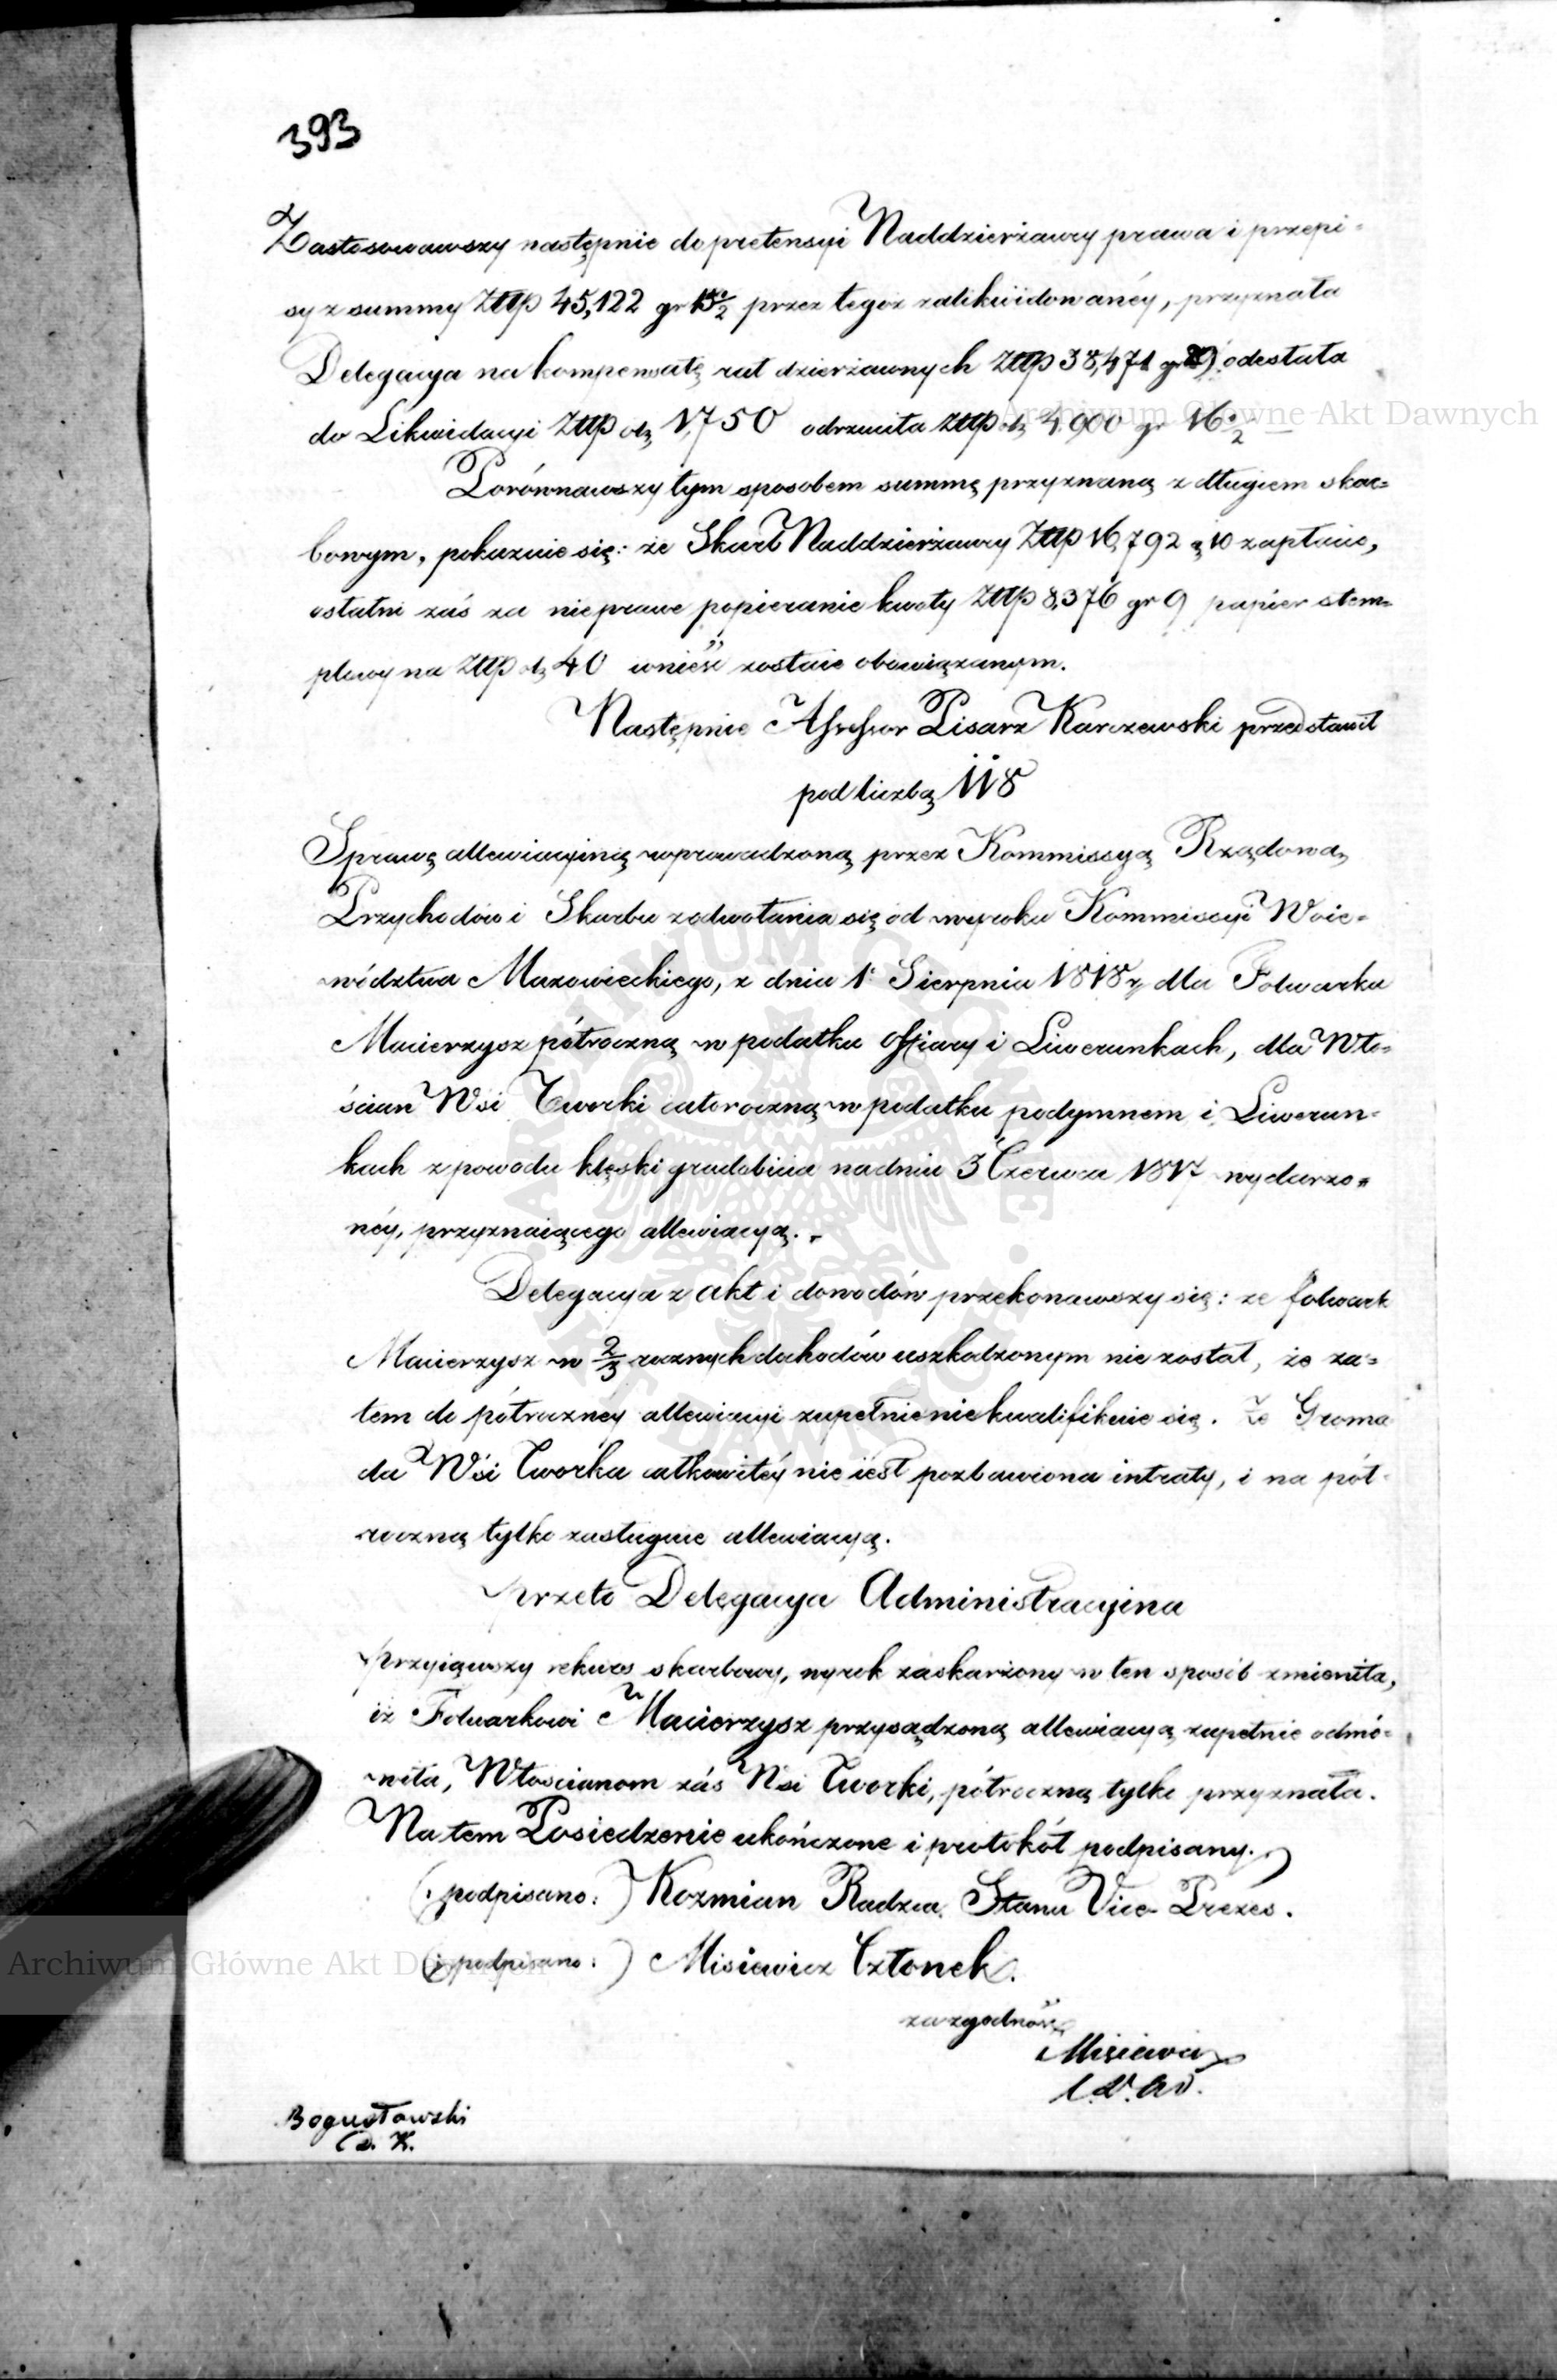 393
Zastosowawszy następnie do pretensyi Naddzierżawcy prawa i przepi-
sy z summy Złlp 45,122 gr 15½ przez tegoż zalikwidowanéy, przyznała
Delegacya na kompensatę rat dzierżawnych Złlp 38,471 gr odesłała
do Likwidacyi Złlp 1,750 odrzuciła Złlp 4,900 gr 16½
Porównawszy tym sposobem summę przyznaną z długiem skar=
bowym, pokazuie się: że Skarb Naddzierżawcy Złlp 16,792 g 10 zapłaci,
ostatni zaś za nieprawe popieranie kwoty Złlp 8,376 gr 9 papier stem=
plowy na Złlp 40 wnieść zostaie obowiązanym.
Następnie Assessor Pisarz Karczewski przedstawił
pod liczbą 118
Sprawę allewiacyiną wprowadzoną przez Kommissyą Rządową
Przychodów i Skarbu z odwołania się od wyroku Kommissyi Woie-
wództwa Mazowieckiego, z dnia 1. Sierpnia 1818 r. dla Folwarku
Macierzysz półroczną w podatku Offiary i Liwerunkach, dla Wło=
ścian Wsi Tworki całoroczną w podatku podymnem i Liwerun-
kach z powodu klęski gradobicia na dniu 3 Czerwca 1817 wydarzo=
néy, przyznaiącego allewiacyą.
Delegacya z akt i dowodów przekonawszy się: że folwark
Macierzysz w 2/3 rocznych dochodów uszkodzonym nie został, że za=
tem do półroczney allewiacyi zupełnie nie kwalifikuie się. Że Groma
da Wsi Tworka całkowitéy nie iest pozbawiona intraty, i na pół-
roczną tylko zasługuie allewiacyą.
Przeto Delegacya Administracyina
przyiąwszy rekurs skarbowy, wyrok zaskarżony w ten sposób zmieniła,
iż Folwarkowi Macierzysz przysądzoną allewiacyą zupełnie odmó=
wiła, Włościanom zaś Wsi Tworki, półroczną tylko przyznała.
Na tem Posiedzenie ukończone i protokół podpisany.
(podpisano:) Kozmian Radzca Stanu Vice Prezes.
(podpisano:) Misiewicz Członek.
za zgodność
Misiewicz
Bogusławski
Archiwum Główne Akt Dawnych
Archiwum Główne Akt Dawnych
ARCHIWUM GŁÓWNE AKT DAWNYCH